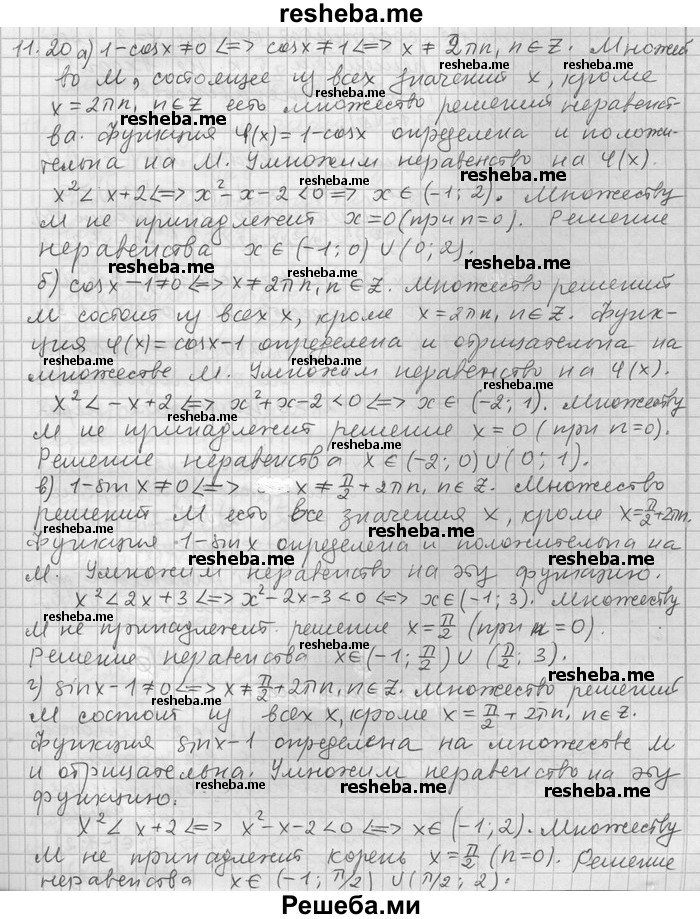 resheba.me
11.20 а) 1-cosx≠0 <=> cosx≠1 <=> x ≠ 2πn, n∈Z. Множест
во М, состоящее из всех значений x, кроме
resheba.me
x = 2πn, n∈Z есть множество решений неравенст-
ва. Функция φ(x) = 1-cosx определена и положи-
тельна на М. Умножим неравенство на φ(x).
resheba.me
x²< x+2 <=> x²-x-2<0 <=> x ∈ (-1; 2). Множеству
М не принадлежит x=0 (при n=0). Решение
неравенства x ∈ (-1; 0) ∪ (0; 2).
resheba.me resheba.me
б) cosx-1≠0 <=> x≠2πn, n∈Z. Множество решений
М состоит из всех x, кроме x=2πn, n∈Z. Функ-
ция φ(x)=cosx-1 определена и отрицательна на
resheba.me resheba.me
множестве М. Умножим неравенство на φ(x).
resheba.me
x²<-x+2 <=> x²+x-2<0 <=> x∈ (-2; 1). Множеству
resheba.me
М не принадлежит решение x=0 (при n=0).
resheba.me
Решение неравенства x∈(-2; 0)∪(0; 1).
в) 1-sin x≠0 <=> x≠π/2+2πn, n∈Z. Множество
resheba.me
решений М есть все значения x, кроме x=π/2+2πn.
Функция 1-sin x определена и положительна на
resheba.me resheba.me
М. Умножим неравенство на эту функцию.
x²<2x+3 <=> x²-2x-3<0 <=> x∈(-1; 3). Множеству
resheba.me
М не принадлежит решение x=π/2 (при n=0).
resheba.me
Решение неравенства x∈(-1; π/2) ∪ (π/2; 3).
г) sinx-1≠0 <=> x≠π/2+2πn, n∈Z. Множество решений
resheba.me
М состоит из всех x, кроме x=π/2+2πn, n∈Z.
Функция sinx-1 определена на множестве М
и отрицательна. Умножим неравенство на эту
resheba.me resheba.me
функцию.
resheba.me
x²< x+2 <=> x²-x-2<0 <=> x∈ (-1; 2). Множеству
М не принадлежит корень x=π/2 (n=0). Решение
resheba.me
неравенства x∈ (-1; π/2) ∪ (π/2; 2).
resheba.me
Решеба.ми